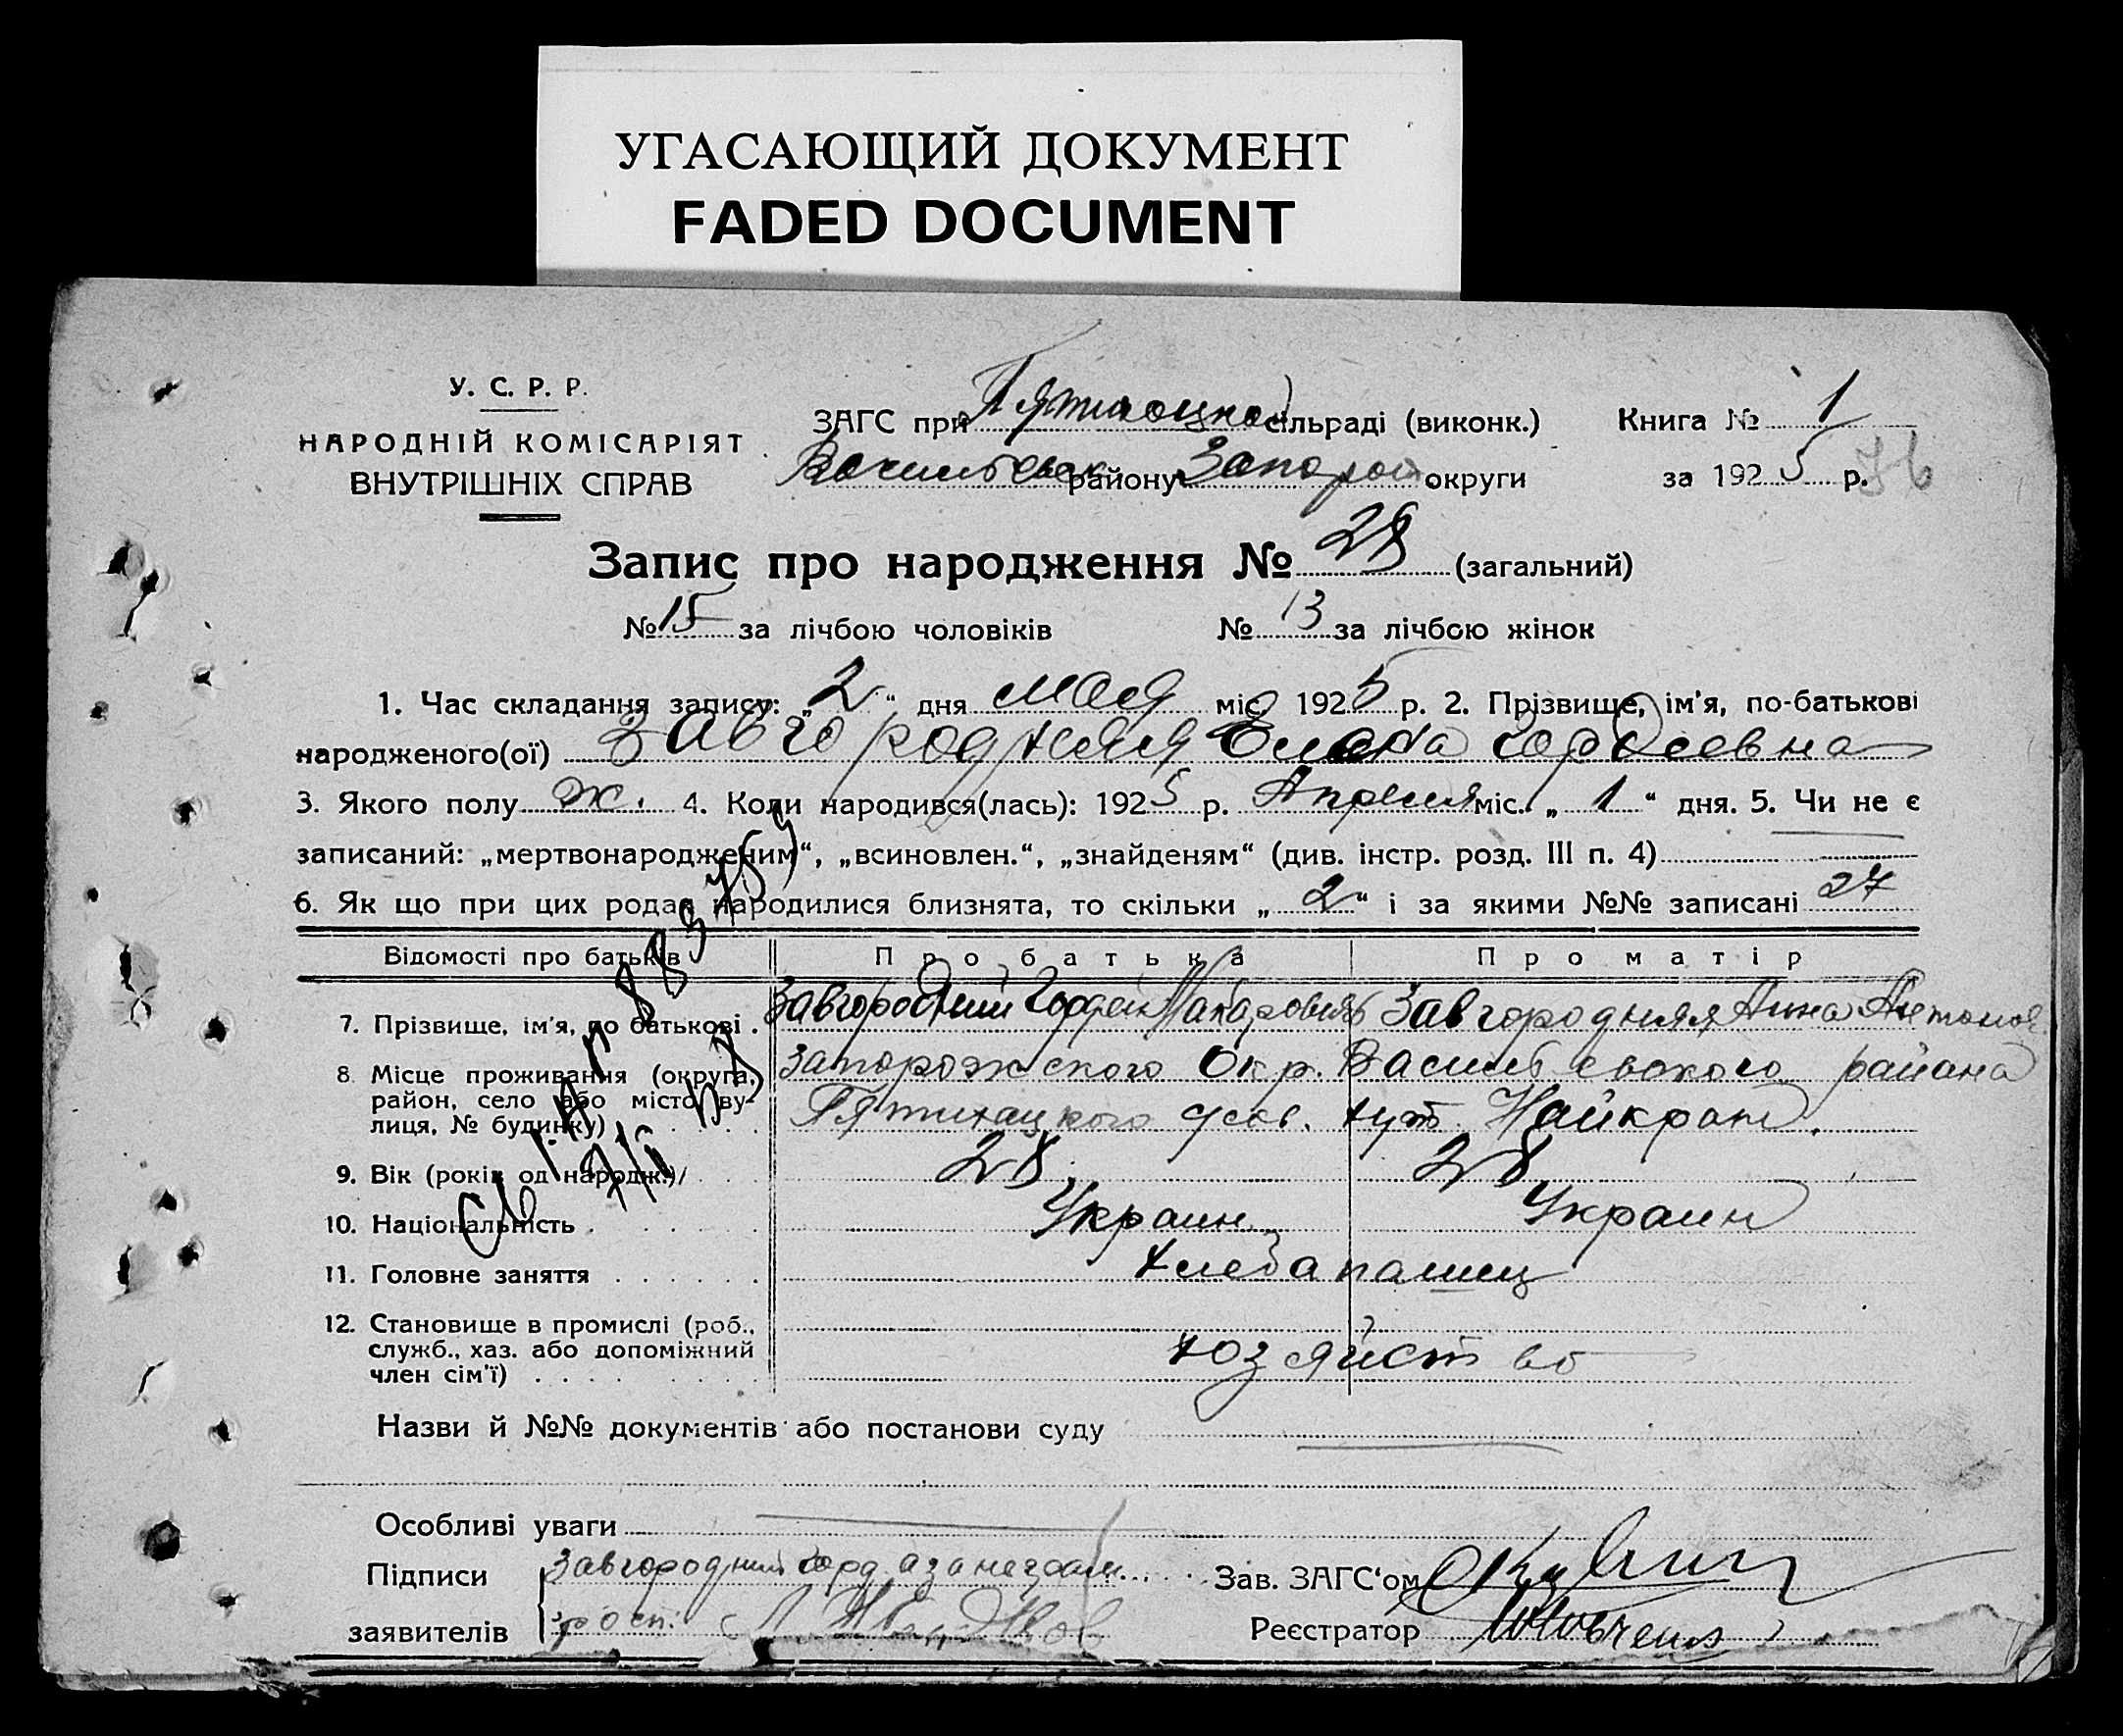 УГАСАЮЩИЙ ДОКУМЕНТ
FADED DOCUMENT
У. С. Р. Р.
НАРОДНІЙ КОМІСАРІЯТ
ВНУТРІШНІХ СПРАВ
ЗАГС при сільраді (виконк.) Книга № 1
району Запорож округи за 1925 р. 76
Запис про народження № 28 (загальний)
№ 15 за лічбою чоловіків № 13 за лічбою жінок
1. Час складання запису: „2“ дня мая міс. 1925 р. 2. Прізвище, ім'я, по-батькові
народженого(ої) Завгородняя Елена Гордеевна
3. Якого полу ж. 4. Коли народився(лась): 1925 р. Апреля міс. „1“ дня. 5. Чи не є
записаний: „мертвонародженим“, „всиновлен.“, „знайденям“ (див. інстр. розд. III п. 4)
6. Як що при цих родах народилися близнята, то скільки „2“ і за якими №№ записані 27
Відомості про батьків Про батька Про матір
7. Прізвище, ім'я, по батькові . Завгородний Гордей Макарович Завгородняя Анна Антонов
8. Місце проживання (округа, район, село або місто, вулиця, № будинку) Запорожского Окр. Васильевского района
хут. Найкрат.
9. Вік (років од народж.) 28 28
10. Національність Украин Украин
11. Головне заняття хлебапашец
12. Становище в промислі (роб., служб., хаз. або допоміжний член сім'ї) хозяйство
Назви й №№ документів або постанови суду
Особливі уваги
Підписи Завгородний Горд. а за негдам
заявителів росп:
Зав. ЗАГС'ом
Реєстратор